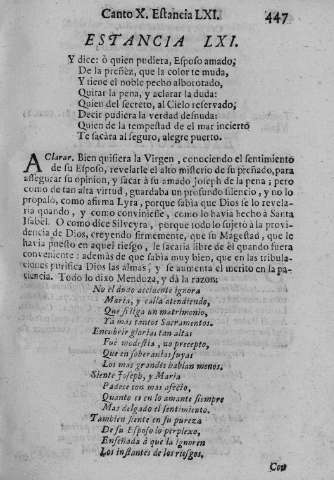 Canto X. Estancia LXI. 447
ESTANCIA LXI.
Y dice: ò quien pudiera, Esposo amado,
De la preñèz, que la color te muda,
Y tiene el noble pecho alborotado,
Quitar la pena, y aclarar la duda:
Quien del secreto, al Cielo reservado,
Decir pudiera la verdad desnuda:
Quien de la tempestad de el mar incierto
Te sacàra al seguro, alegre puerto.
A Clarar. Bien quisiera la Virgen, conociendo el sentimiento
de su Esposo, revelarle el alto misterio de su preñado, para
assegurar su opinion, y sacar à su amado Joseph de la pena; pero
como de tan alta virtud, guardaba un profundo silencio, y no lo
propalò, como afirma Lyra, porque sabia que Dios se lo revela-
ria quando, y como conviniesse, como lo havia hecho à Santa
Isabèl. O como dice Silveyra, porque todo lo sujetò à la provi-
dencia de Dios, creyendo firmemente, que su Magestad, que lo
havia puesto en aquel riesgo, le sacaria libre de èl quando fuera
conveniente: ademàs de que sabia muy bien, que en las tribula-
ciones purifica Dios las almas, y se aumenta el merito en la pa-
ciencia. Todo lo dixo Mendoza, y dà la razon:
No el dozto accidente ignora
Maria, y calla atendiendo,
Que si liga un matrimonio,
Ya mas tantos Sacramentos.
Encubrir glorias tan altas
Fuè modestia, no precepto,
Que en soberanias suyas
Los mas grandes hablan menos.
Siente Joseph, y Maria
Padece con mas afecto,
Quanto es en lo amante siempre
Mas delgado el sentimiento.
Tambien siente en su pureza
De su Esposo lo perplexo,
Enseñada à que la ignoren
Los instantes de los riesgos.
Con